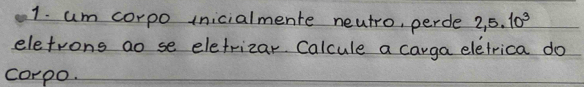 1. um corpo inicialmente neutro, perde 2,5.10³
eletrons ao se eletrizar. Calcule a carga elétrica do
corpo.